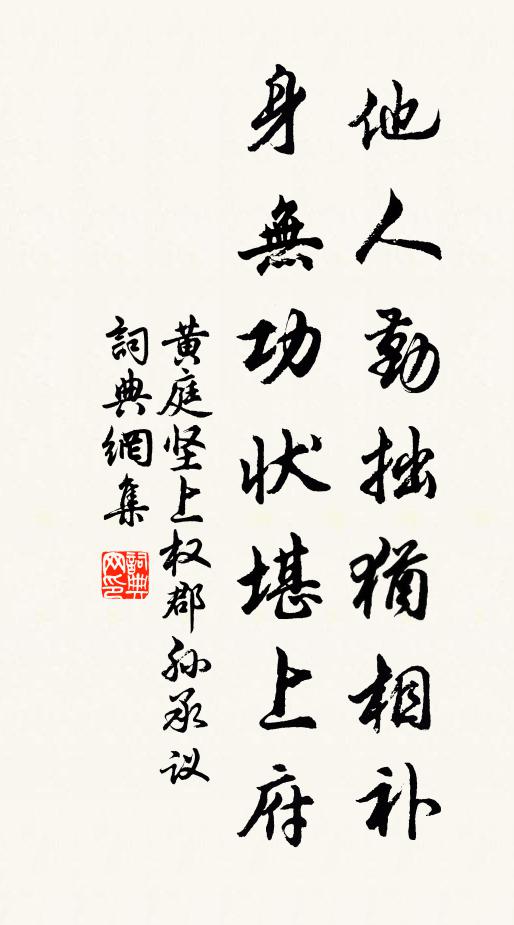 他人勤拙猶相补
身無功状堪上府
黄庭坚上权郡孙承议
詞典網集
詞典网印